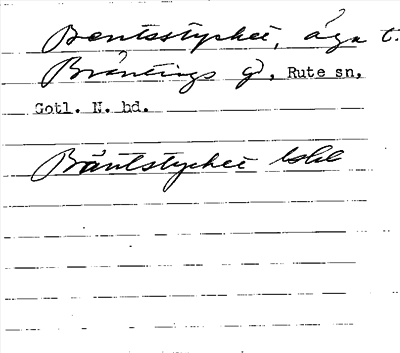 Bentsstycket, äga t.
Bräntings g., Rute sn,
Gotl. N. hd.
Bäntstycket